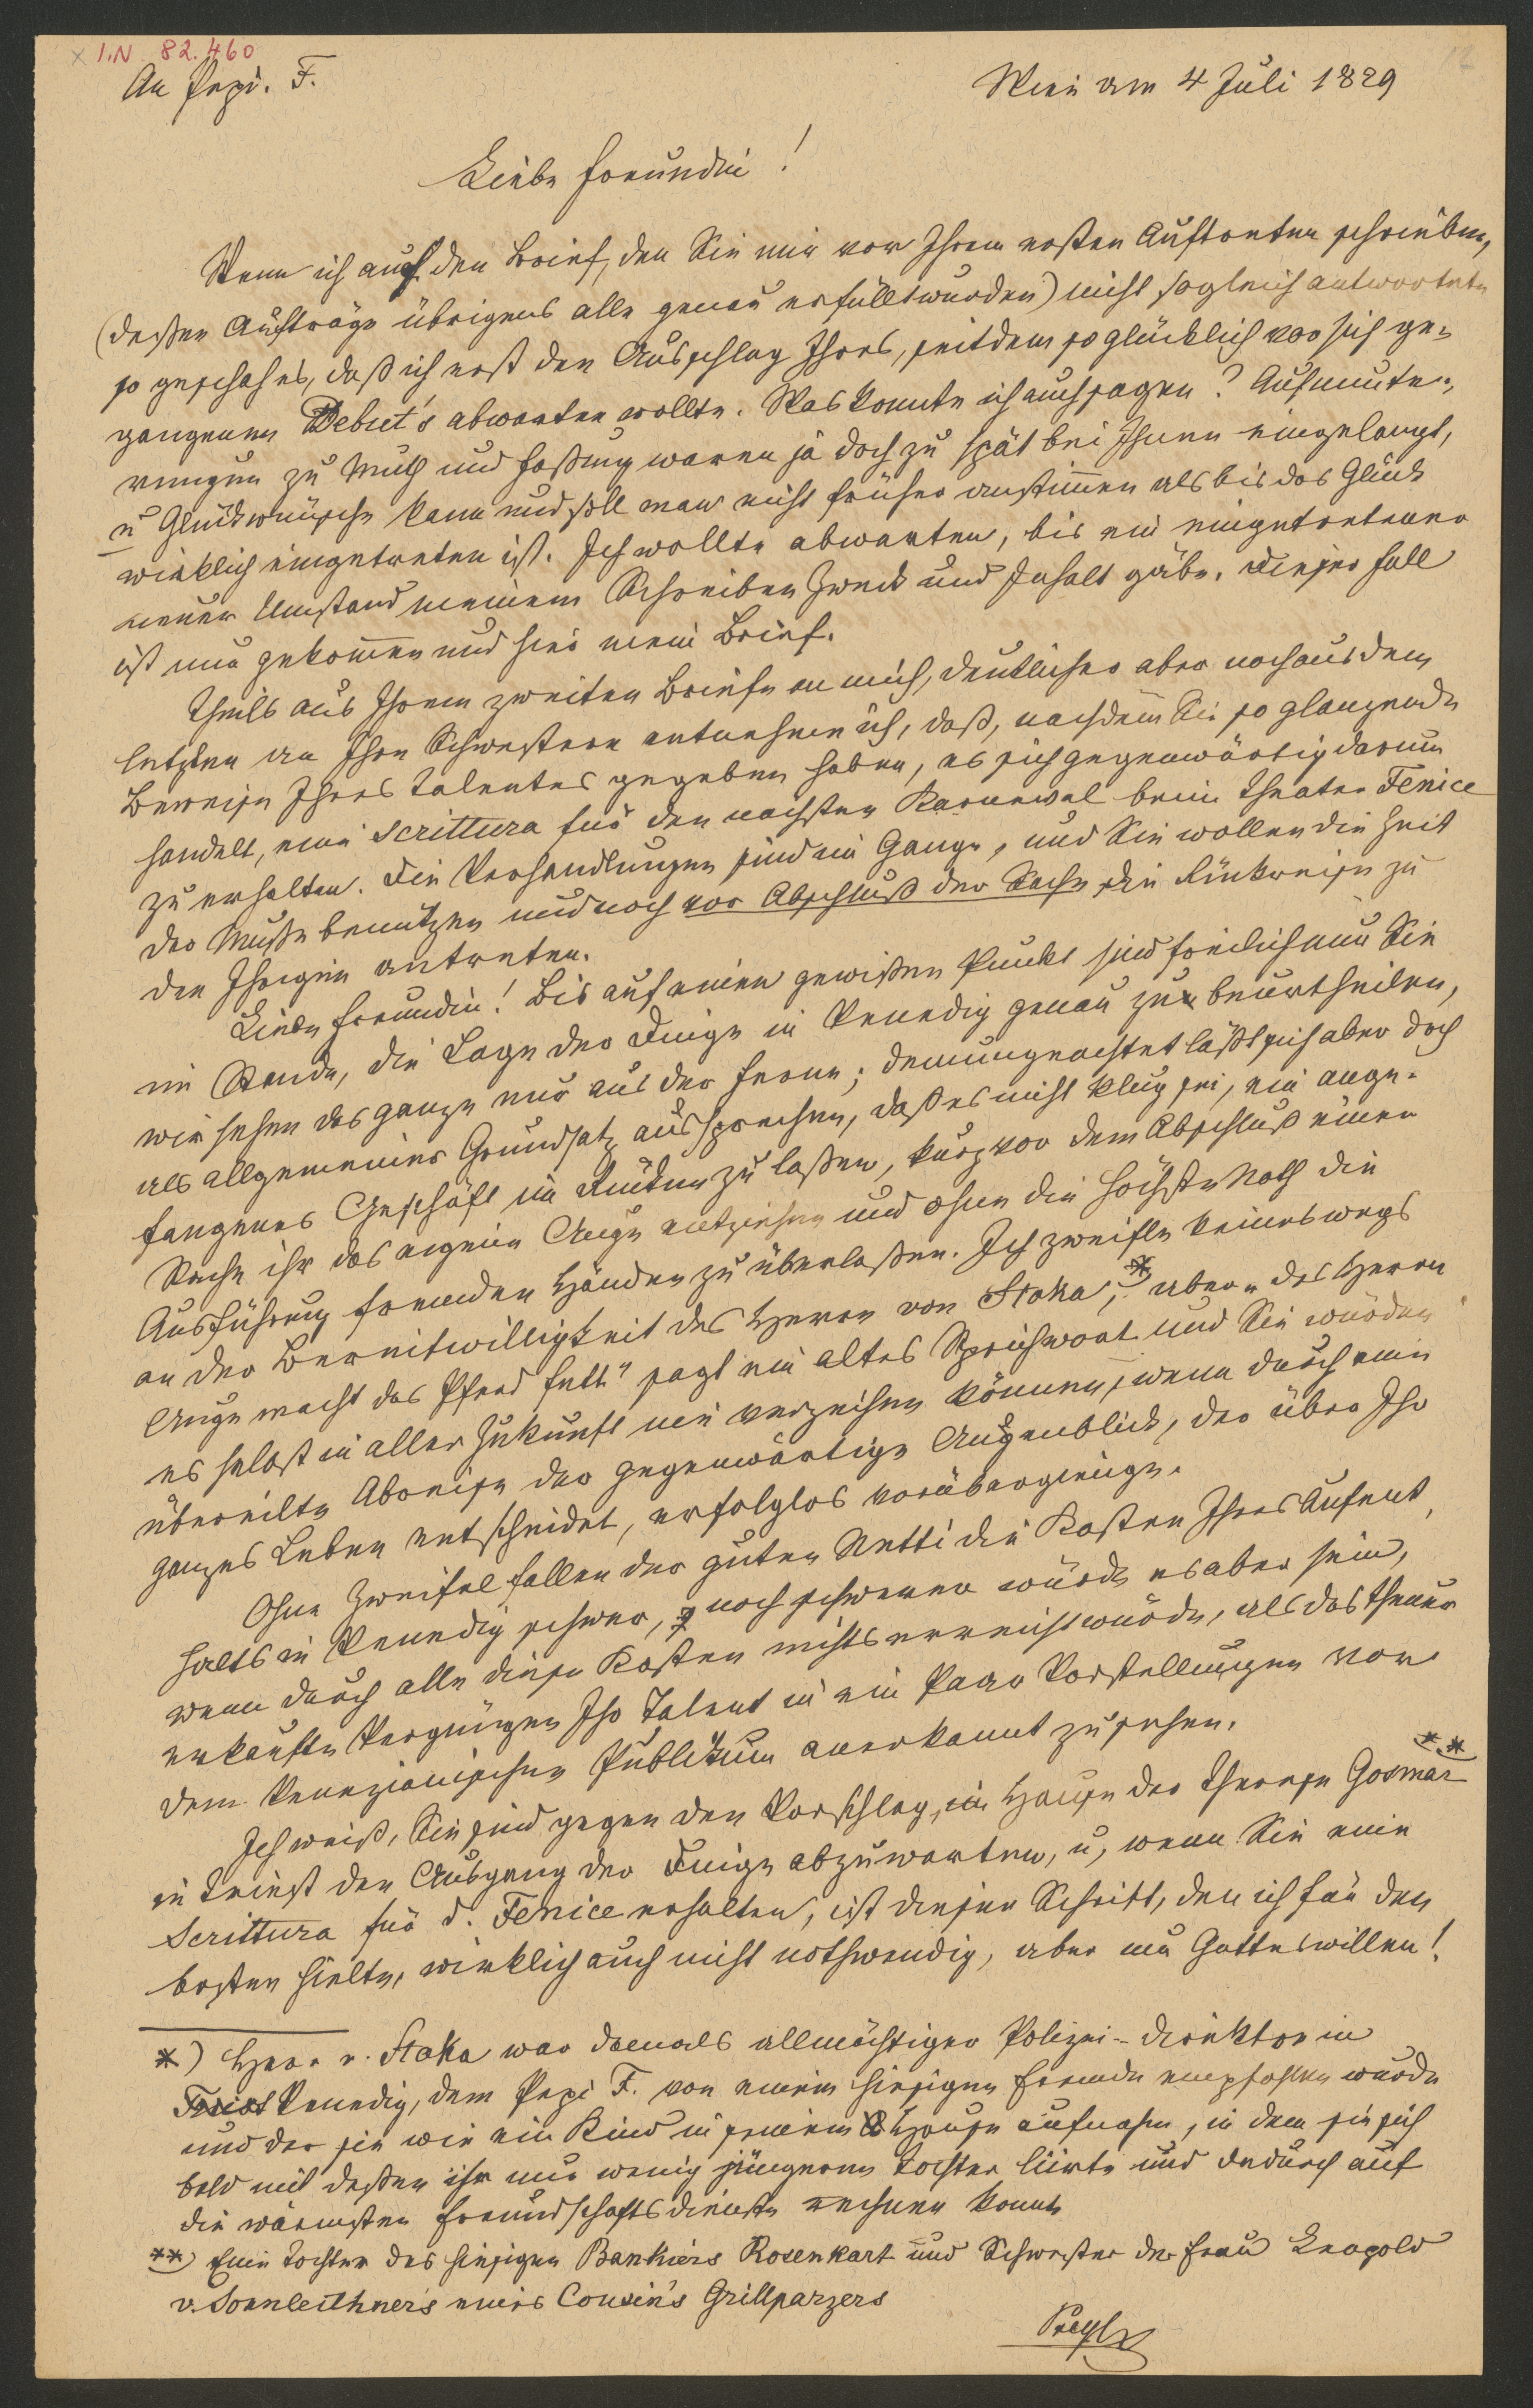 I.N 82.460
An Pepi. F.
Wien am 4 Juli 1829
Liebe Freundin!
Wenn ich auf den Brief, den Sie mir vor Ihrem ersten Auftreten schrieben,
(deßen Aufträge übrigens alle genau erfüllt wurden) nicht sogleich antwortete
so geschah es, daß ich erst den Ausschlag Ihres, seitdem so glücklich vor sich ge-
gangenen Debut's abwarten wollte. Was konnte ich auch sagen? Aufmunte-
rungen zu Muth und Faßung waren ja doch zu spät bei Ihnen eingelangt,
u Glückwünsche kann und soll man nicht früher anstimmen als bis das Glück
wirklich eingetreten ist. Ich wollte abwarten, bis ein eingetretener
neuer Umstand meinem Schreiben Zweck und Inhalt gäbe. Dieser Fall
ist nun gekommen und hier mein Brief.
Theils aus Ihrem zweiten Briefe an mich, deutlicher aber noch aus dem
letzten an Ihre Schwestern entnehme ich, daß, nachdem Sie so glänzende
Beweise Ihres Talentes gegeben haben, es sich gegenwärtig darum
handelt, eine Scrittura für den nächsten Karneval beim Theater Fenice
zu erhalten. Die Verhandlungen sind im Gange, und Sie wollen die Zeit
der Muße benützen und noch vor Abschluß der Sache die Rückreise zu
den Ihrigen antreten.
Liebe Freundin! Bis auf einen gewißen Punkt sind freilich nur Sie
im Stande, die Lage der Dinge in Venedig genau zu beurtheilen,
wir sehen das ganze nur aus der Ferne; demungeachtet läßt sich aber doch
als allgemeiner Grundsatz aussprechen, daß es nicht klug sei, ein ange-
fangenes Geschäft im Rücken zu laßen, kurz vor dem Abschluß einer
Sache ihr das eigene Auge entziehen und ohne die höchste Noth die
Ausführung fremden Händen zu überlaßen. Ich zweifle keineswegs
an der Bereitwilligkeit des Herrn von Stoka,* aber „des Herrn
Auge macht das Pferd fett" sagt ein altes Sprichwort und Sie würden
es selbst in aller Zukunft nie verzeihen können, wenn durch eine
übereilte Abreise der gegenwärtige Augenblick, der über Ihr
ganzes Leben entscheidet, erfolglos vorübergienge.
Ohne Zweifel fallen der guten Netti die Kosten Ihres Aufent
halts in Venedig schwer, noch schwerer würde es aber sein,
wenn durch alle diese Kosten nichts erreicht würde, als das theuer
erkaufte Vergnügen Ihr Talent in ein Paar Vorstellungen von
dem Venezianischen Publikum anerkannt zu sehen.
Ich weiß, Sie sind gegen den Vorschlag, im Hause der Therese Gosmar**
in Triest den Ausgang der Dinge abzuwarten, u, wenn Sie eine
Scrittura für d. Fenice erhalten, ist dieser Schritt, den ich für den
besten hielte, wirklich auch nicht nothwendig, aber um Gotteswillen!
*) Herr v. Stoka war damals allmächtiger Polizei-Direktor in
Triest Venedig, dem Pepi F. von einem hiesigen Freunde empfohlen wurde
und der sie wie ein Kind in seinem Hause aufnahm, in dem sie sich
bald mit deßen ihr nur wenig jüngeren Tochter liirte und dadurch auf
die wärmsten Freundschaftsdienste rechnen konnte
**) Eine Tochter des hiesigen Bankiers Rosenkart und Schwester der Frau Leopold
v. Sonnleithner's eines Cousin's Grillparzers